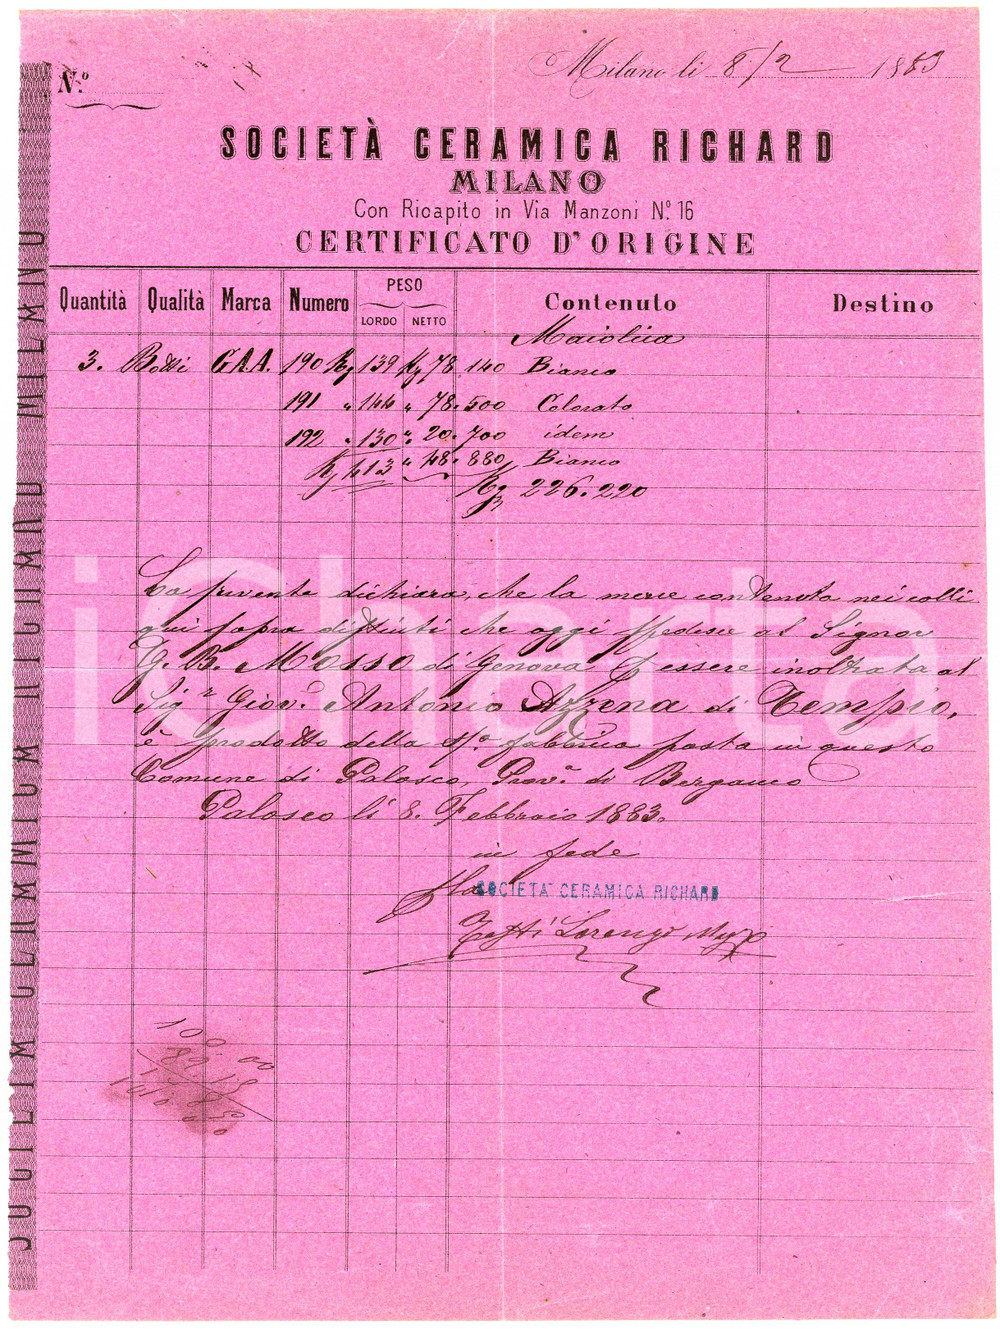 Milano li 8/2 1883
N.º
SOCIETÀ CERAMICA RICHARD
MILANO
Con Ricapito in Via Manzoni N.º 16
CERTIFICATO D'ORIGINE
Quantità Qualità Marca Numero PESO LORDO NETTO Contenuto Destino
Maiolica
3. Botti G.A.A. 190 Kg 139 Kg 78.140 Bianco
191 " 144 " 78.500 Colorato
192 " 130 " 20.700 idem
Kg 413 " 48.880 Bianco
Kg 226.220
La presente dichiara, che la merce contenuta nei colli
qui sopra distinti che oggi spedesi al Signor
G. B. Mosso di Genova p essere inoltrata al
Sig.r Giov. Antonio Azzena di Tempio,
è prodotto della fabbrica posta in questo
Comune di Palosco, Prov.a di Bergamo
Palosco li 8. Febbraio 1883.
in fede
p la SOCIETÀ CERAMICA RICHARD
Lorenzo
iCharta